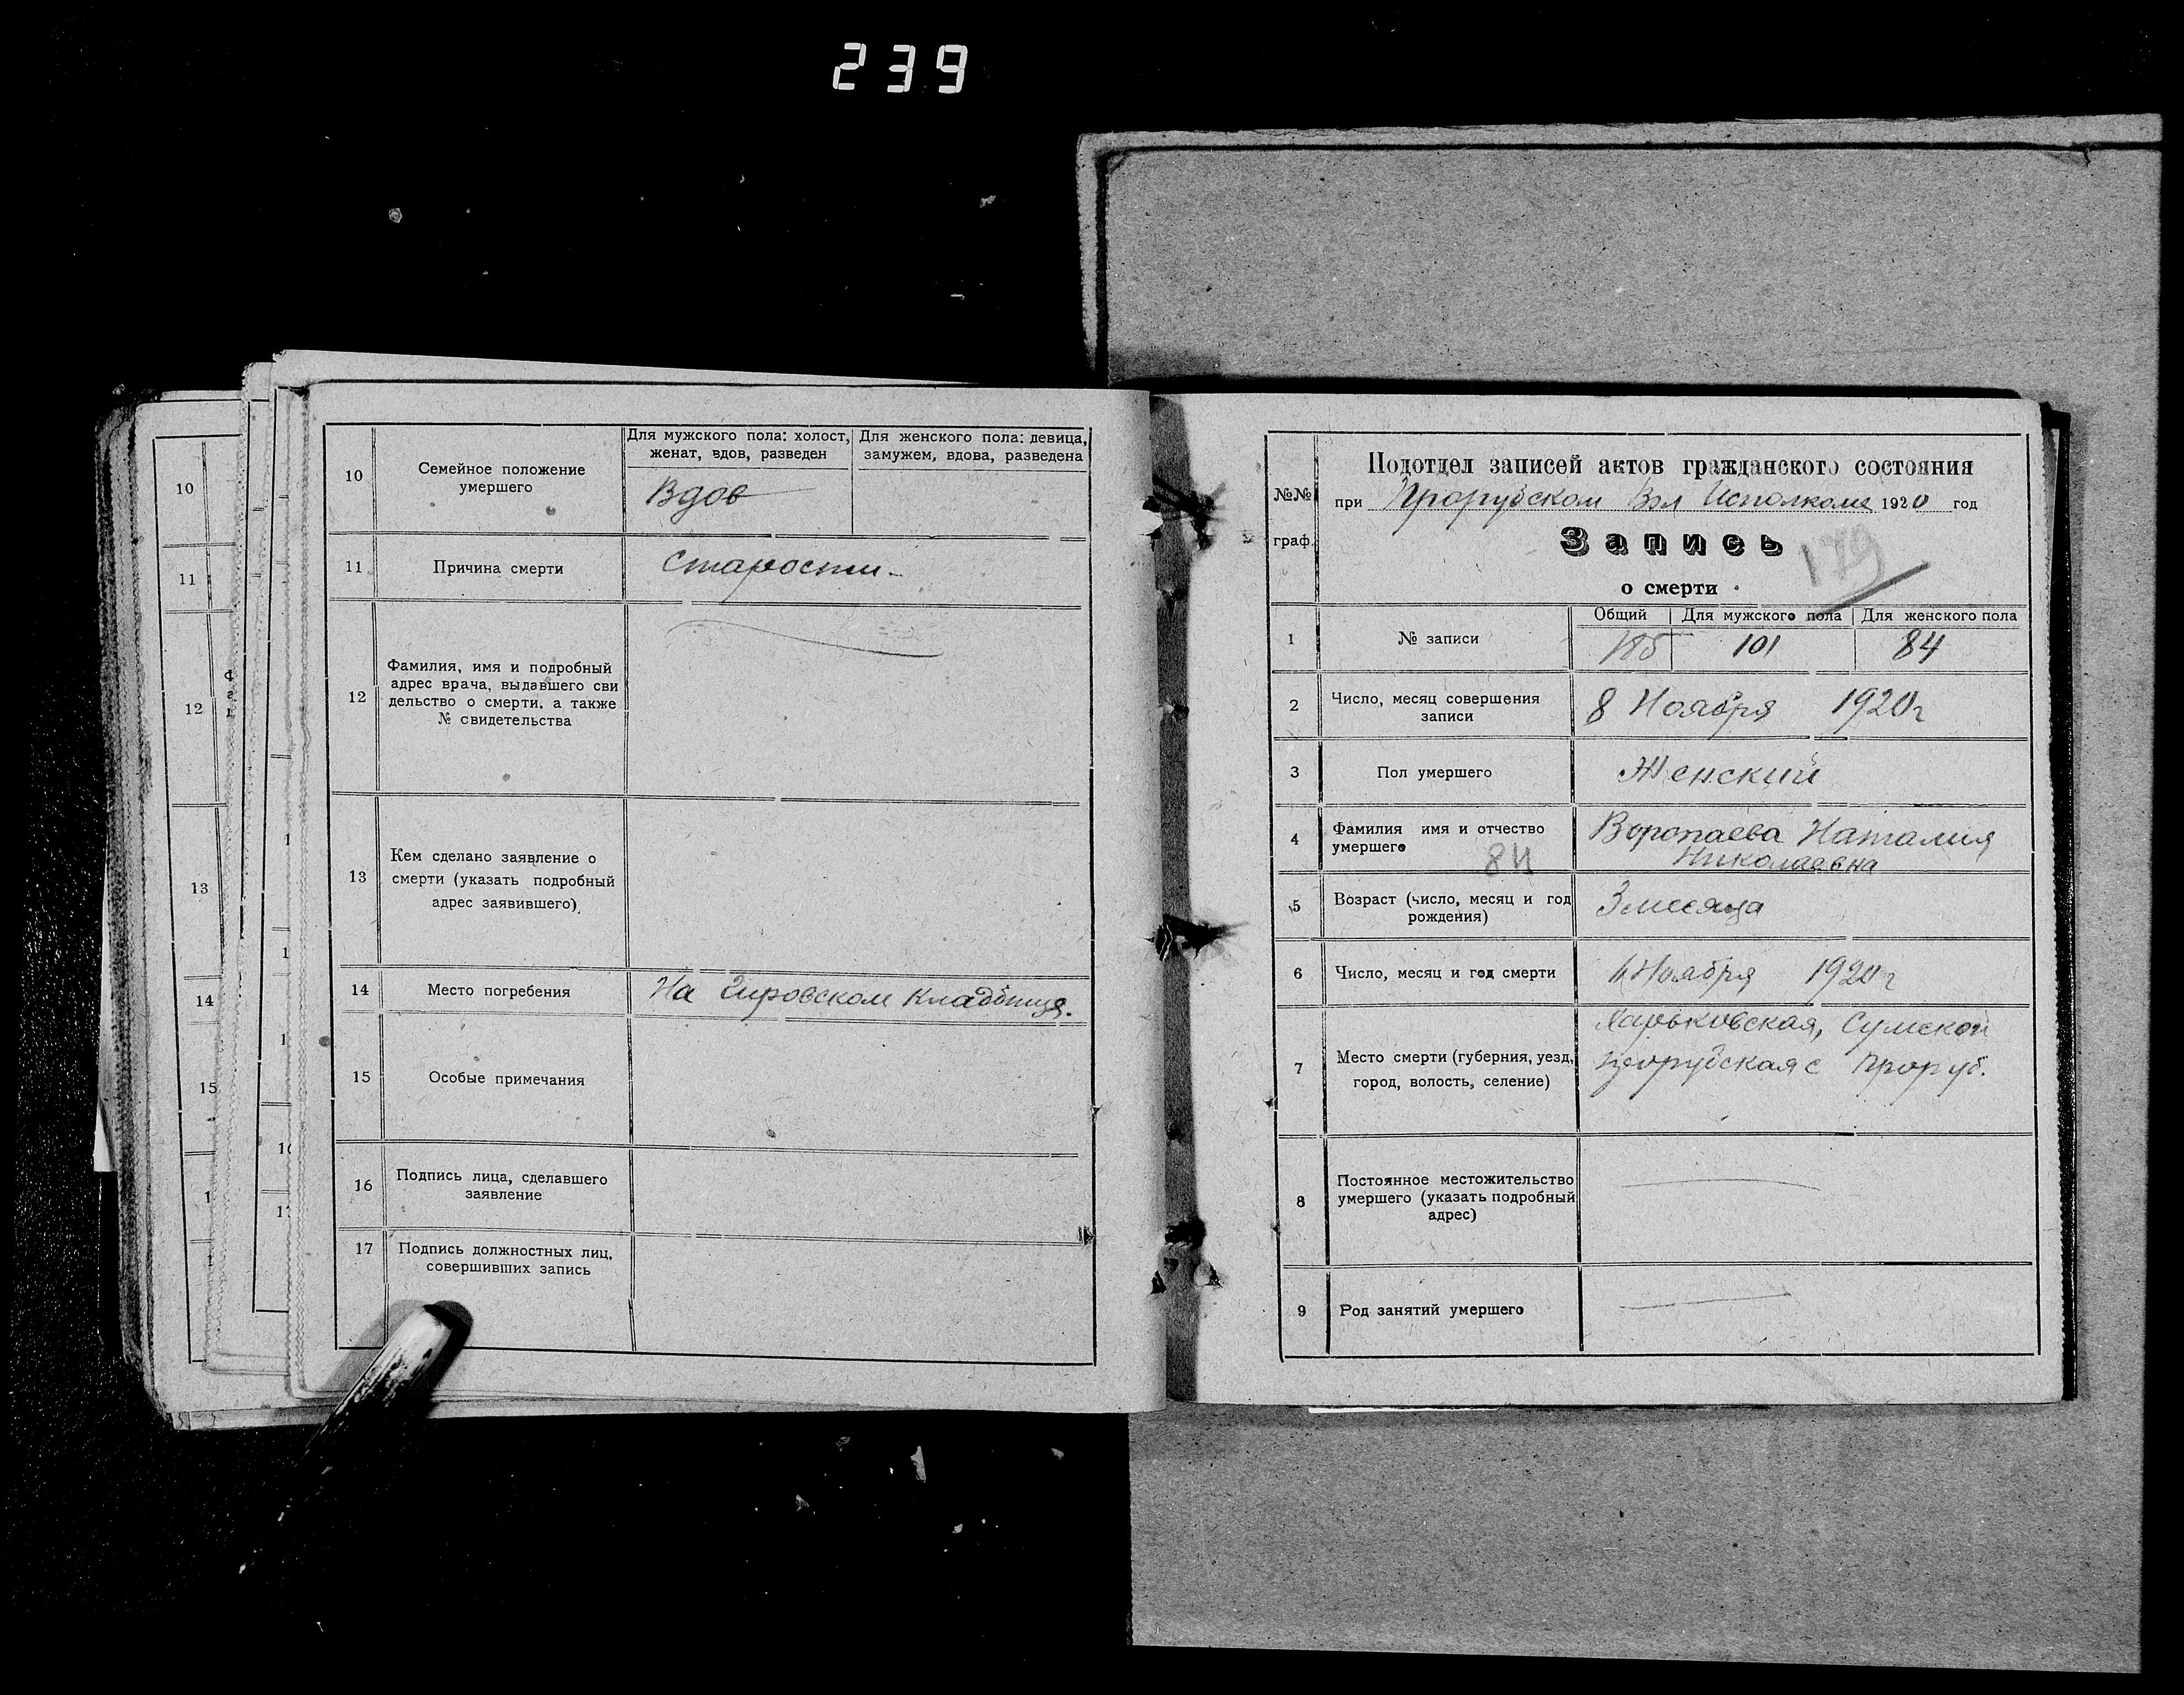 239
10
11
12
13
14
15
10
Семейное положение
умершего
Для мужского пола: холост,
женат, вдов, разведен
Для женского пола: девица,
замужем, вдова, разведена
Вдов
11
Причина смерти
Старости
12
Фамилия, имя и подробный
адрес врача, выдавшего сви
дельство о смерти, а также
№ свидетельства
13
Кем сделано заявление о
смерти (указать подробный
адрес заявившего)
14
Место погребения
На кладбище.
15
Особые примечания
16
Подпись лица, сделавшего
заявление
17
Подпись должностных лиц,
совершивших запись
№№
граф.
Подотдел записей актов гражданского состояния
при Прорубском Вол Исполкоме 1920 год
Запись
179
о смерти
1
№ записи
Общий
Для мужского пола
Для женского пола
185
101
84
2
Число, месяц совершения
записи
8 Ноября 1920г
3
Пол умершего
Женский
4
Фамилия имя и отчество
умершего
84
Воропаева Наталия
Николаевна
5
Возраст (число, месяц и год
рождения)
3 месяца
6
Число, месяц и год смерти
Ноября 1920г
7
Место смерти (губерния, уезд,
город, волость, селение)
Харьковская, Сумской
Прорубская с Проруб.
8
Постоянное местожительство
умершего (указать подробный
адрес)
9
Род занятий умершего